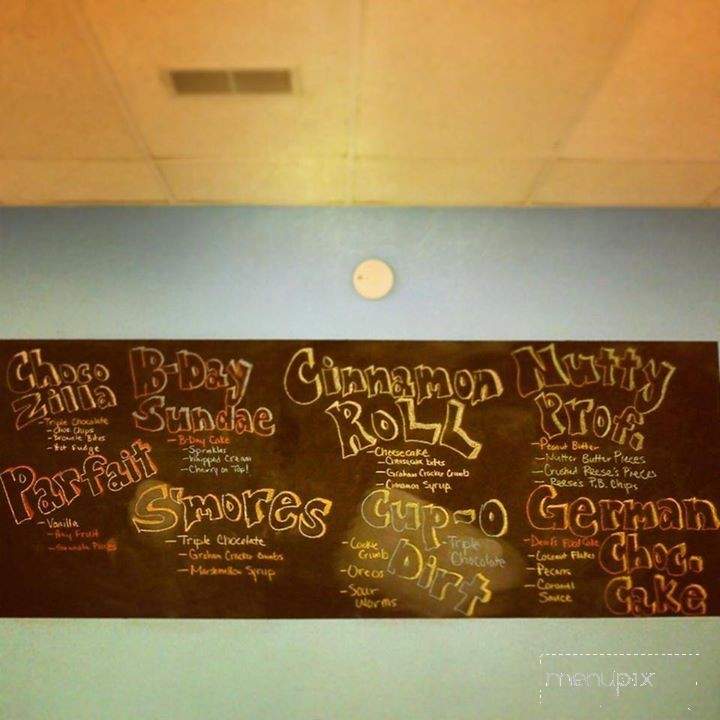 Choco
Zilla
- Triple Chocolate
- Choc Chips
- Brownie Bites
- Hot Fudge
B-Day
Sundae
- B-Day Cake
- Sprinkles
- Whipped Cream
- Cherry on Top!
Cinnamon
Roll
- Cheesecake
- Cheesecake bites
- Graham Cracker Crumb
- Cinnamon Syrup
Nutty
Prof.
- Peanut Butter
- Nutter Butter Pieces
- Crushed Reese's Pieces
- Reese's P.B. Chips
Parfait
- Vanilla
- Any Fruit
- Granola
S'mores
- Triple Chocolate
- Graham Cracker Crumbs
- Marshmallow Syrup
Cup-O
Dirt
- Triple
Chocolate
- Cookie
Crumb
- Oreos
- Sour
Worms
German
Choc.
Cake
- Devil's Food Cake
- Coconut Flakes
- Pecans
- Caramel
Sauce
menupix